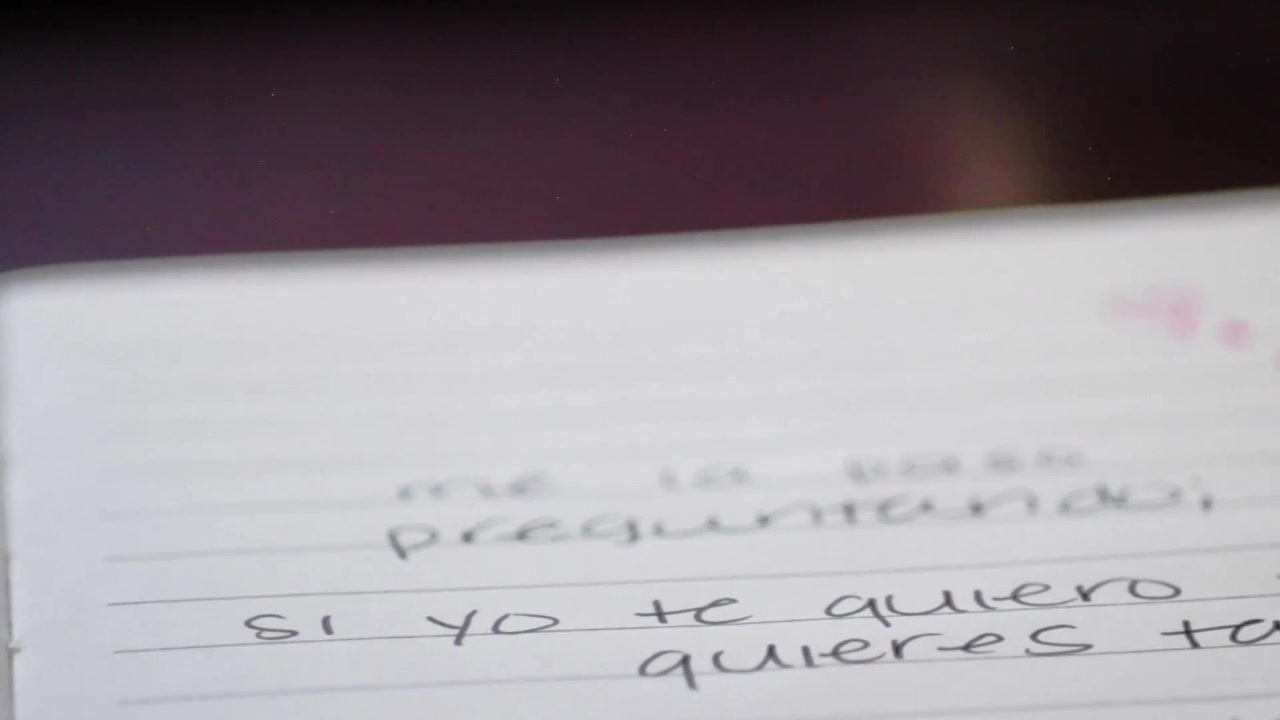 me la paso
preguntando,
si yo te quiero
quieres